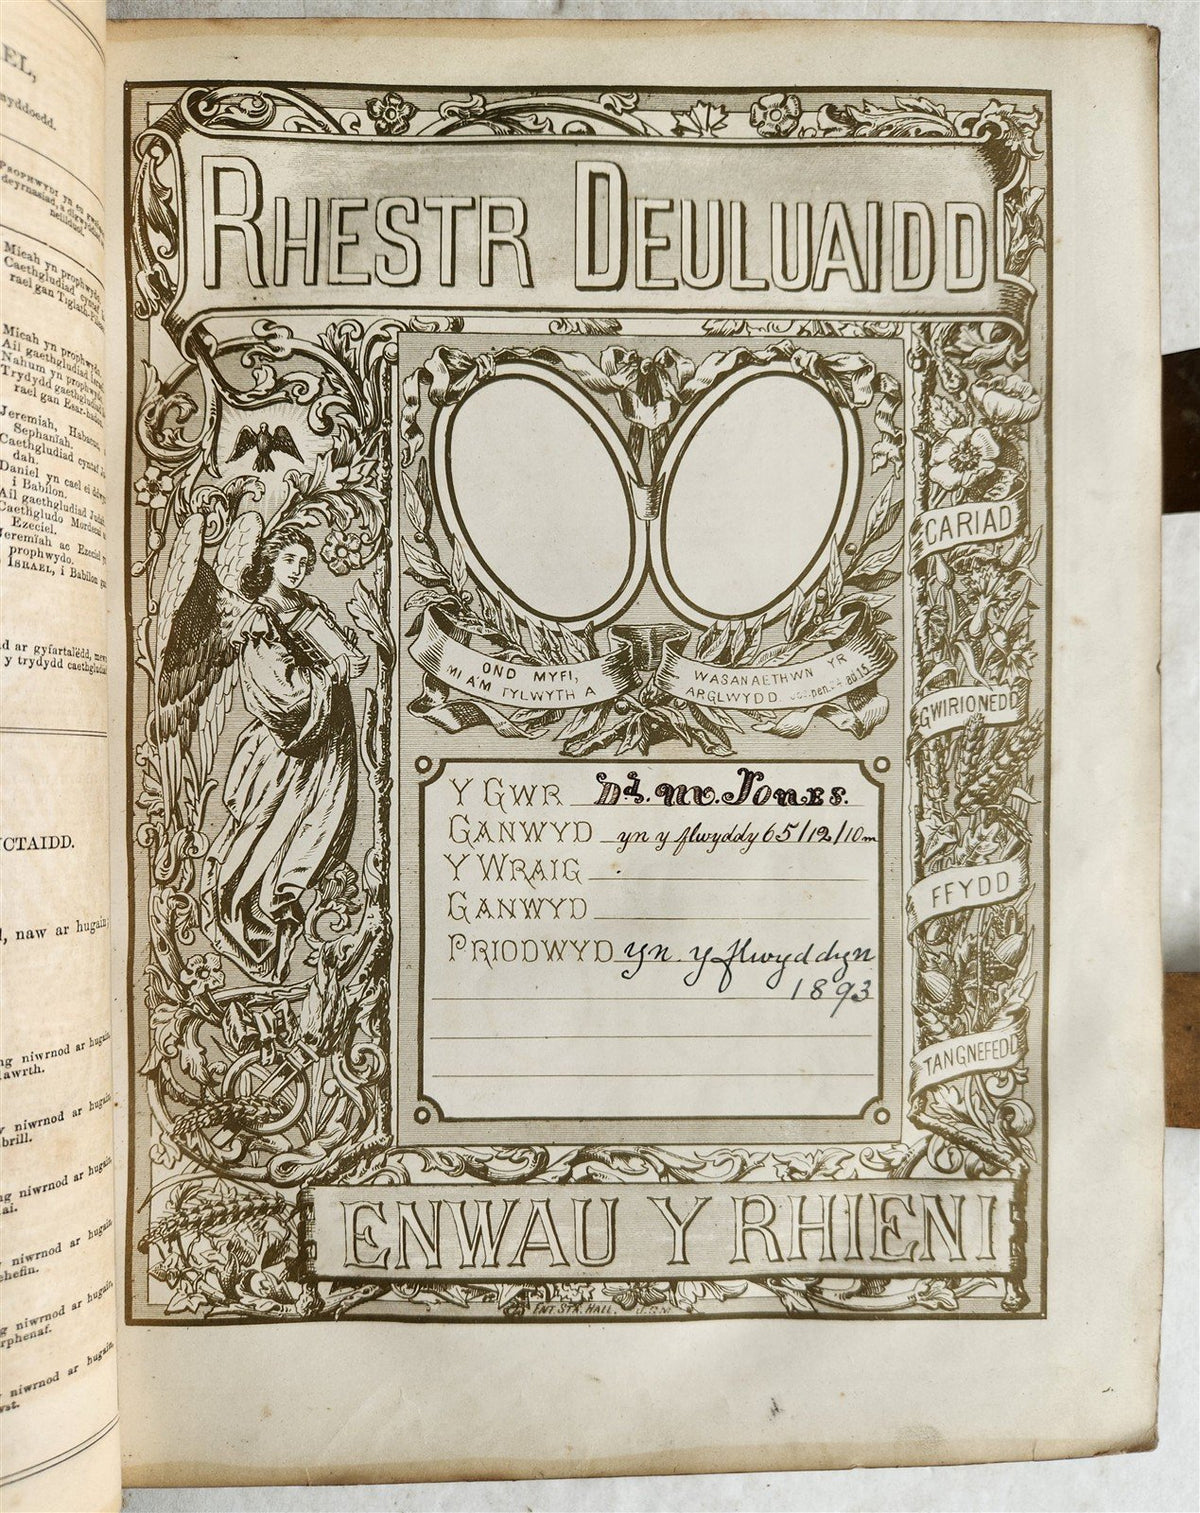 EL,
PROPHWYDI yn eu
Micah yn prophwydo.
Caethgludiad cyntaf
rael gan Tiglath
Micah yn prophwydo.
Ail gaethgludiad Israel
Nahum yn prophwydo.
Trydydd gaethgludiad
rael gan Esar-haddon.
Jeremiah, Habacuc,
Sephaniah.
Caethgludiad cyntaf
dah.
Daniel yn cael ei
i Babilon.
Ail gaethgludiad Judah
Caethgludo Mordecai
Ezeciel.
Jeremiah ac Ezeciel
prophwydo.
ISRAEL, i Babilon
ar gyfartaledd,
y trydydd
CTAIDD.
naw ar hugain
ng niwrnod ar hugain
awrth.
niwrnod ar hugain
brill.
ng niwrnod ar hugain
ai.
niwrnod ar hugain
ehefin.
niwrnod ar hugain
rphenaf.
niwrnod ar hugain
wst.
RHESTR DEULUAIDD
CARIAD
GWIRIONEDD
FFYDD
TANGNEFEDD
OND MYFI,
MI A'M TYLWYTH A
WASANAETHWN YR
ARGLWYDD Jos. pen. 24. ad 15.
Y GWR Dd. W. Jones.
GANWYD yn y flwyddy 65/12/10m
Y WRAIG
GANWYD
PRIODWYD yn y flwyddyn
1893
ENWAU Y RHIENI
ENT. STA. HALL.